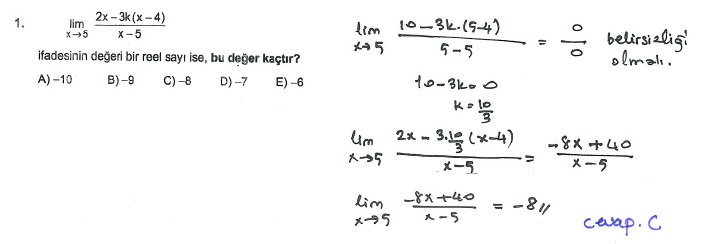 1. lim x→5 2x – 3k(x – 4) / x – 5
ifadesinin değeri bir reel sayı ise, bu değer kaçtır?
A) –10 B) –9 C) –8 D) –7 E) –6
lim x→5 10 – 3k.(5-4) / 5-5 = 0/0 belirsizliği
olmalı.
10-3k=0
k = 10/3
lim x→5 2x – 3.10/3 (x-4) / x-5 = -8x+40 / x-5
lim x→5 -8x+40 / x-5 = -8//
cevap. C